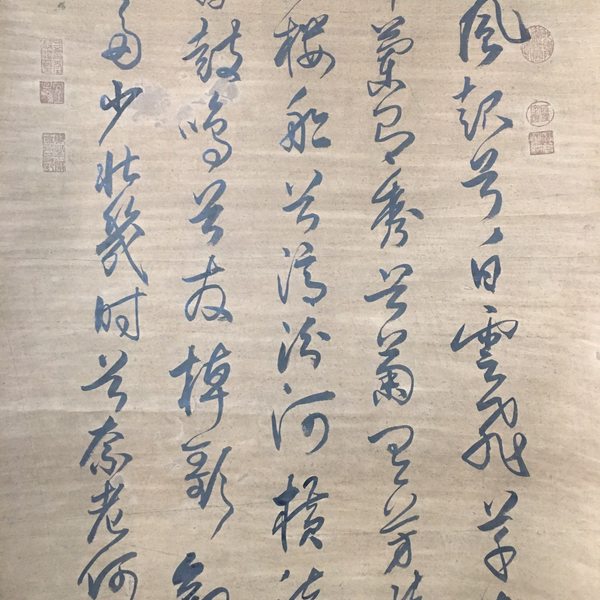 風起兮白雲飛草
蘭有秀兮菊有芳
樓船兮濟汾河橫
鼓鳴兮發棹歌
少壯幾時兮奈老何